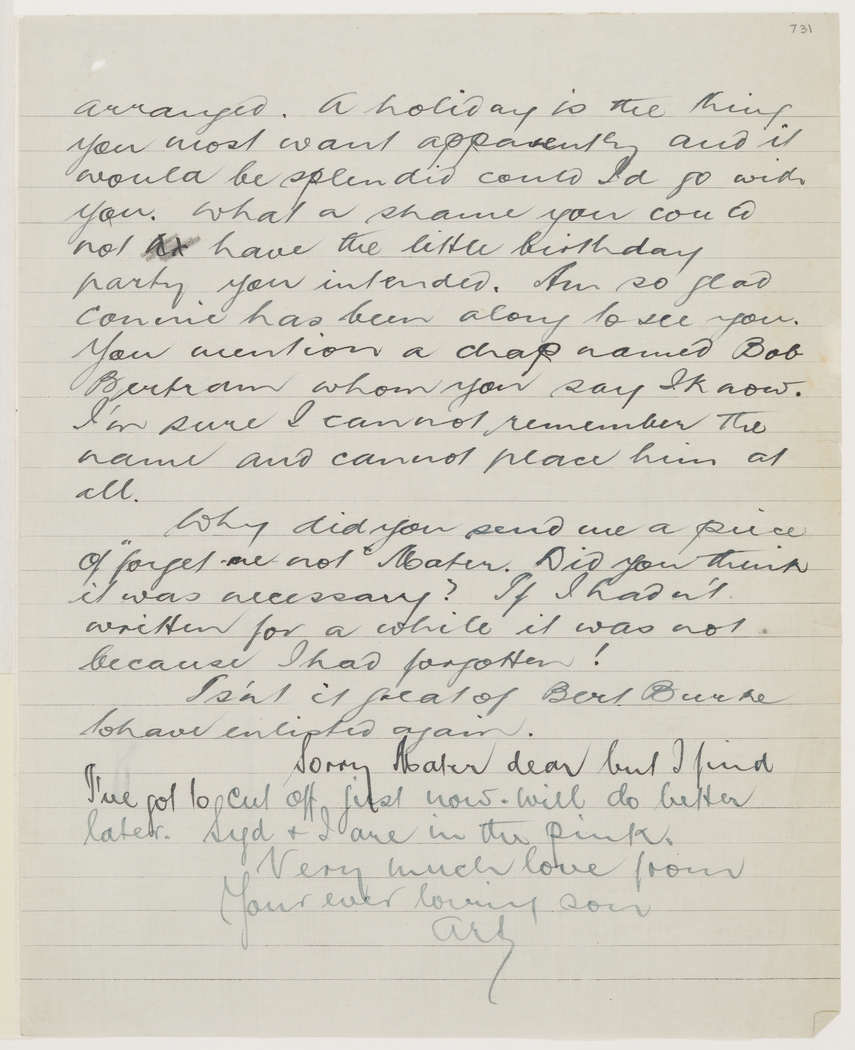 731
arranged. A holiday is the thing
you most want apparently and it
would be splendid could I'd go with
you. What a shame you could
not have the little birthday
party you intended. Am so glad
Connie has been along to see you.
You mention a chap named Bob
Bertram whom you say I know.
I'm sure I cannot remember the
name and cannot place him at
all.
Why did you send me a piece
of "forget-me-not" Mater. Did you think
it was necessary? If I hadn't
written for a while it was not
because I had forgotten!
Isn't it great of Bert Burke
to have enlisted again.
Sorry Mater dear but I find
I've got to cut off just now. Will do better
later. Syd & I are in the pink.
Very much love from
Your ever loving son
Art